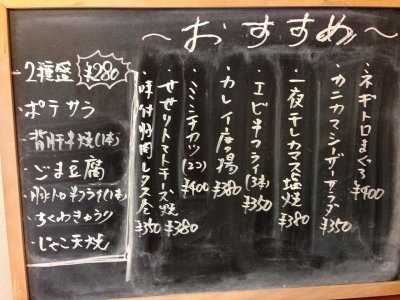 ～おすすめ～
・ネギトロまぐろ ¥400
・カニカマシーザーサラダ ¥350
・一夜干しカマス塩焼 ¥380
・エビ串フライ(3本) ¥350
・カレイ唐揚 ¥380
・ミニミンチカツ(2コ) ¥400
・せせりトマトチーズ焼 ¥380
・味付 肉レタス ¥350
2種盛 ¥280
・ポテサラ
・背肝串焼(1本)
・ごま豆腐
・豚トロ串フライ(1本)
・ちくわきゅうり
・じゃこ天焼